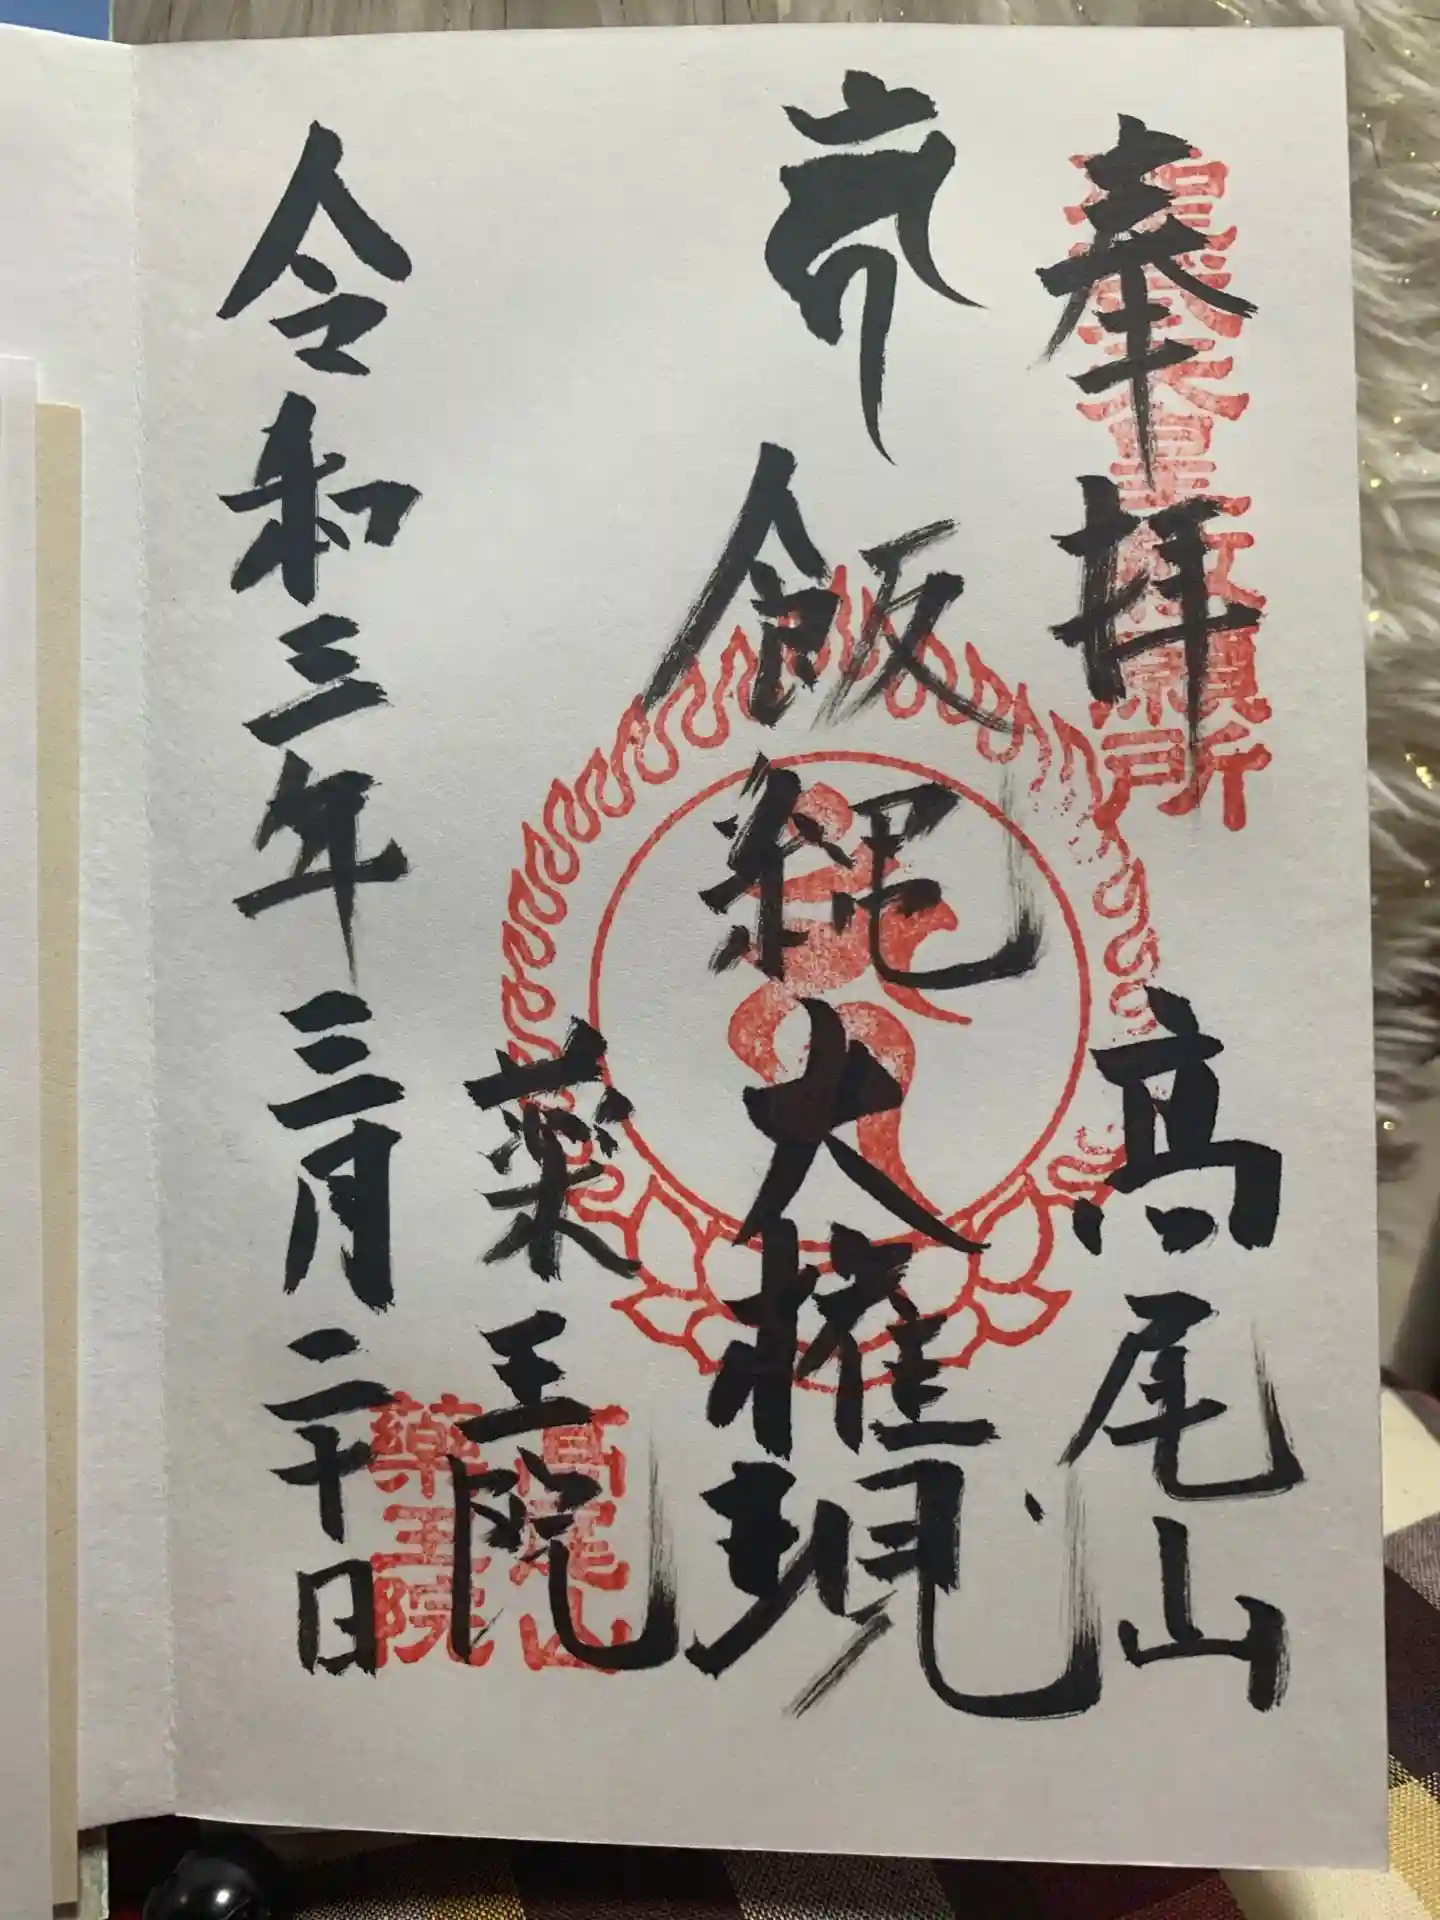 奉拝 高尾山
聖武天皇勅願所
飯縄大権現
薬王院
高尾山
藥王院
令和三年三月二十日